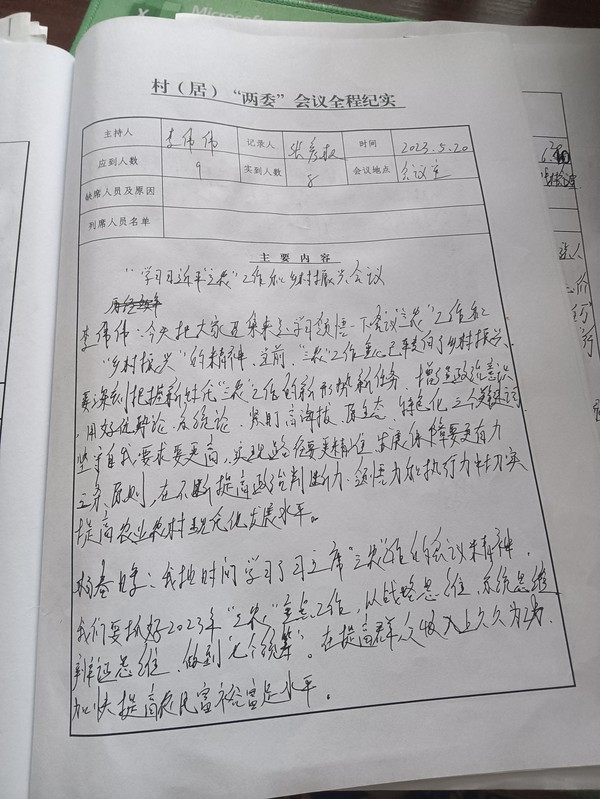 Microsoft
村（居）“两委”会议全程纪实
主持人 李伟伟 记录人 时间 2023.5.20
应到人数 9 实到人数 8 会议地点 会议室
缺席人员及原因
列席人员名单
主要内容
“学习习近平“三农”工作和乡村振兴会议
李伟伟：今天把大家召集来了，学习领悟一下会议“三农”工作和
“乡村振兴”的精神，当前，“三农”工作重心已转向了乡村振兴，
要深刻把握新时代“三农”工作的新形势新任务，增强政治意识
，用好优势论、系统论，紧盯高海拔、原生态、特色化三个关键词，
坚守自我要求要更高，实现路径要更精准，发展保障要更有力
三条原则，在不断提高政治判断力、领悟力和执行力中切实
提高农业农村现代化发展水平。
杨春：我抽时间学习了习主席“三农”工作的会议精神，
我们要抓好2023年“三农”重点工作，从战略思维，系统思维
辨证思维，做到“七个统筹”。在提高群众收入上久久为功，
加快提高农民富裕富足水平。